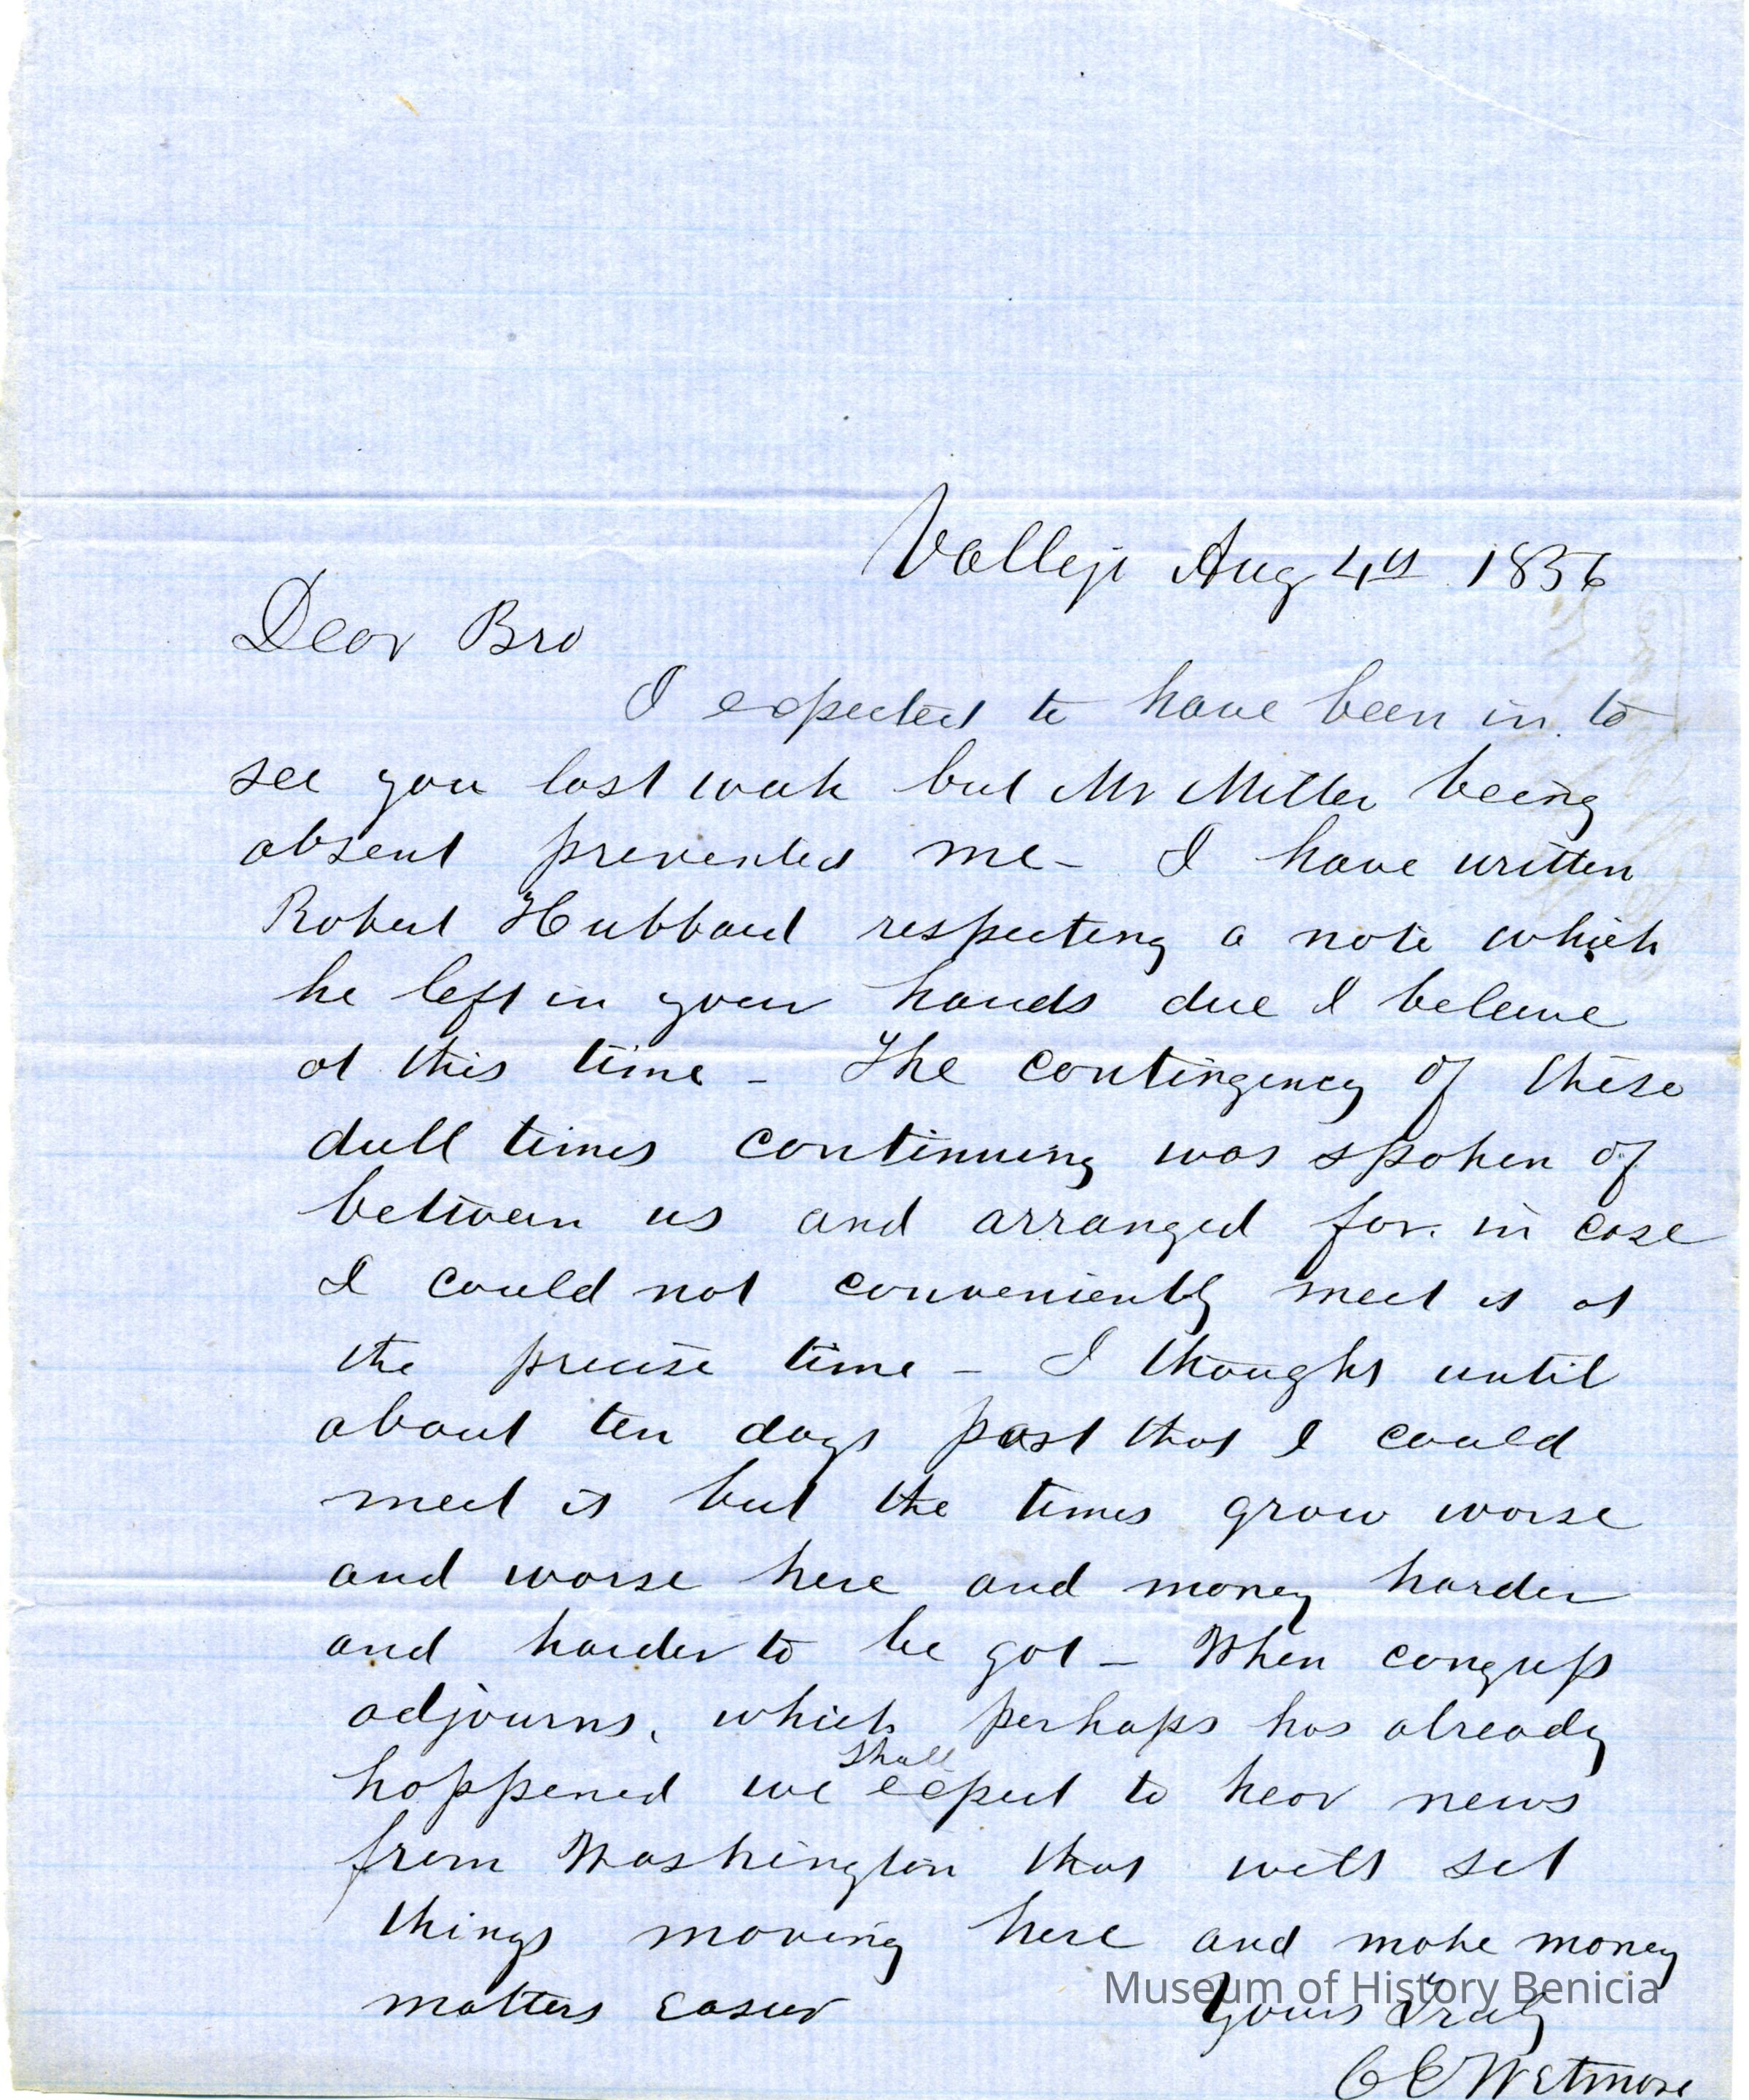 Vallejo Aug 4th 1856
Dear Bro
I expected to have been in to
see you last week but Mr Miller being
absent prevented me - I have written
Robert Hubbard respecting a note which
he left in your hands due I beleive
at this time - The contingency of these
dull times continuing was spoken of
between us and arranged for. in case
I could not conveniently meet it at
the precise time - I thought until
about ten days past that I could
meet it but the times grow worse
and worse here and money harder
and harder to be got - When congress
adjourns, which perhaps has already
happened we shall expect to hear news
from Washington that will set
things moving here and make money
matters easier
Yours Truly
C E Wetmore
Museum of History Benicia